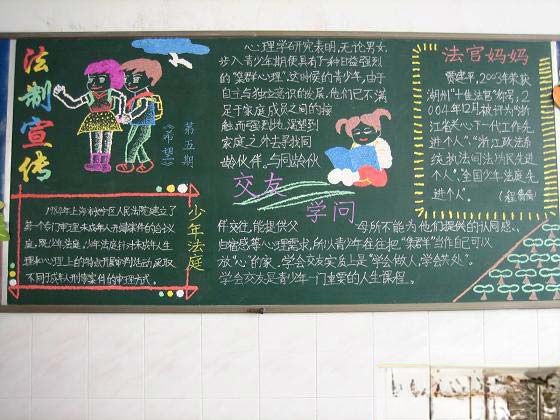 法制宣传
第五期
《希望》
心理学研究表明,无论男女,
步入青少年期便具有了种日益强烈
的"集群心理",这时候的青少年,由于
自主与独立意识的发展,他们已不满
足于家庭成员之间的接
触,而强烈地渴望到
家庭之外去寻找同
龄伙伴。与同龄伙
交友
学问
伴交往,能提供父母所不能为他们提供的认同感、
归宿感等心理需求,所以青少年往往把"集群"当作自己可以
放"心"的家。学会交友实质上是"学会做人,学会共处"。
学会交友是青少年一门重要的人生课程。
法官妈妈
2003年荣获
潮州"十佳法官"称号,2
004年12月被评为"浙
江省关心下一代工作先
进个人","浙江政法系
统执法司法为民先进
个人","全国少年法庭先
进个人"。
少年法庭
1984年上海市长宁区人民法院建立了
第一个专门审理未成年人刑事案件的合议
庭,既少年法庭,少年法庭针对未成年人生
理和心理上的特点开展审判活动,采取
不同于成年人刑事案件的审理方式。